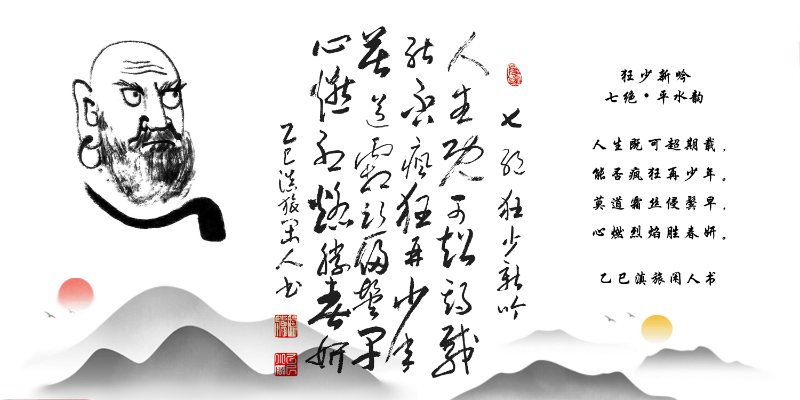 狂少新吟
七绝·平水韵
人生既可超期载，
能否疯狂再少年。
莫道霜丝侵鬓早，
心燃烈焰胜春妍。
乙巳滇旅闲人书
七绝狂少新吟
人生既可超期载
能否疯狂再少年
莫道霜丝侵鬓早
心燃烈焰胜春妍
乙巳滇旅闲人书